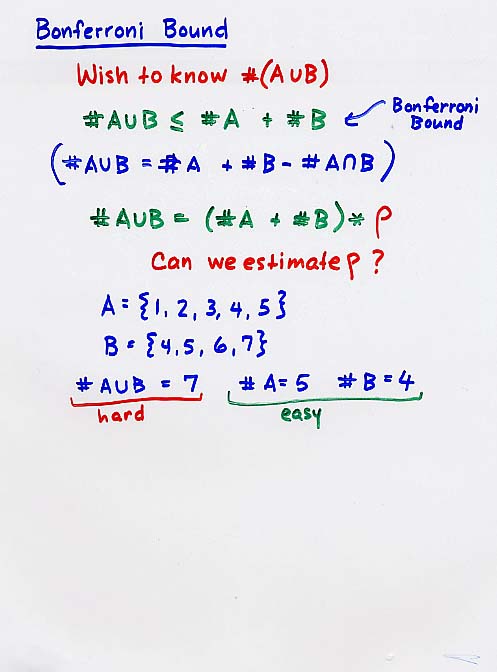 Bonferroni Bound
Wish to know #(A∪B)
#A∪B ≤ #A + #B ← Bonferroni Bound
(#A∪B = #A + #B - #A∩B)
#A∪B = (#A + #B) * ρ
Can we estimate ρ ?
A = {1, 2, 3, 4, 5}
B = {4, 5, 6, 7}
#A∪B = 7 #A = 5 #B = 4
hard easy